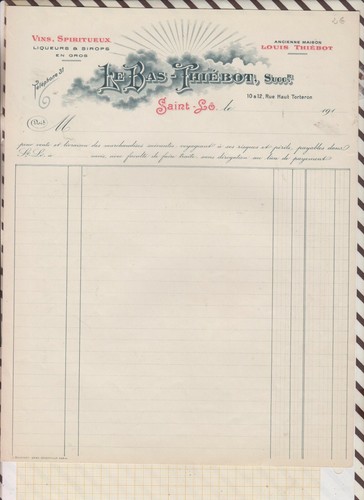 Vins, Spiritueux
Liqueurs & Sirops
en Gros
Ancienne Maison
Louis Thiébot
Téléphone 31
Le Bas-Thiébot, Succr
10 & 12, Rue Haut Torteron
Saint-Lô, le 191
Doit M
pour vente et livraison des marchandises suivantes voyageant à ses risques et périls, payables dans
St-Lô, a sans, sans faculté de faire traite, sans dérogation au lieu de payement